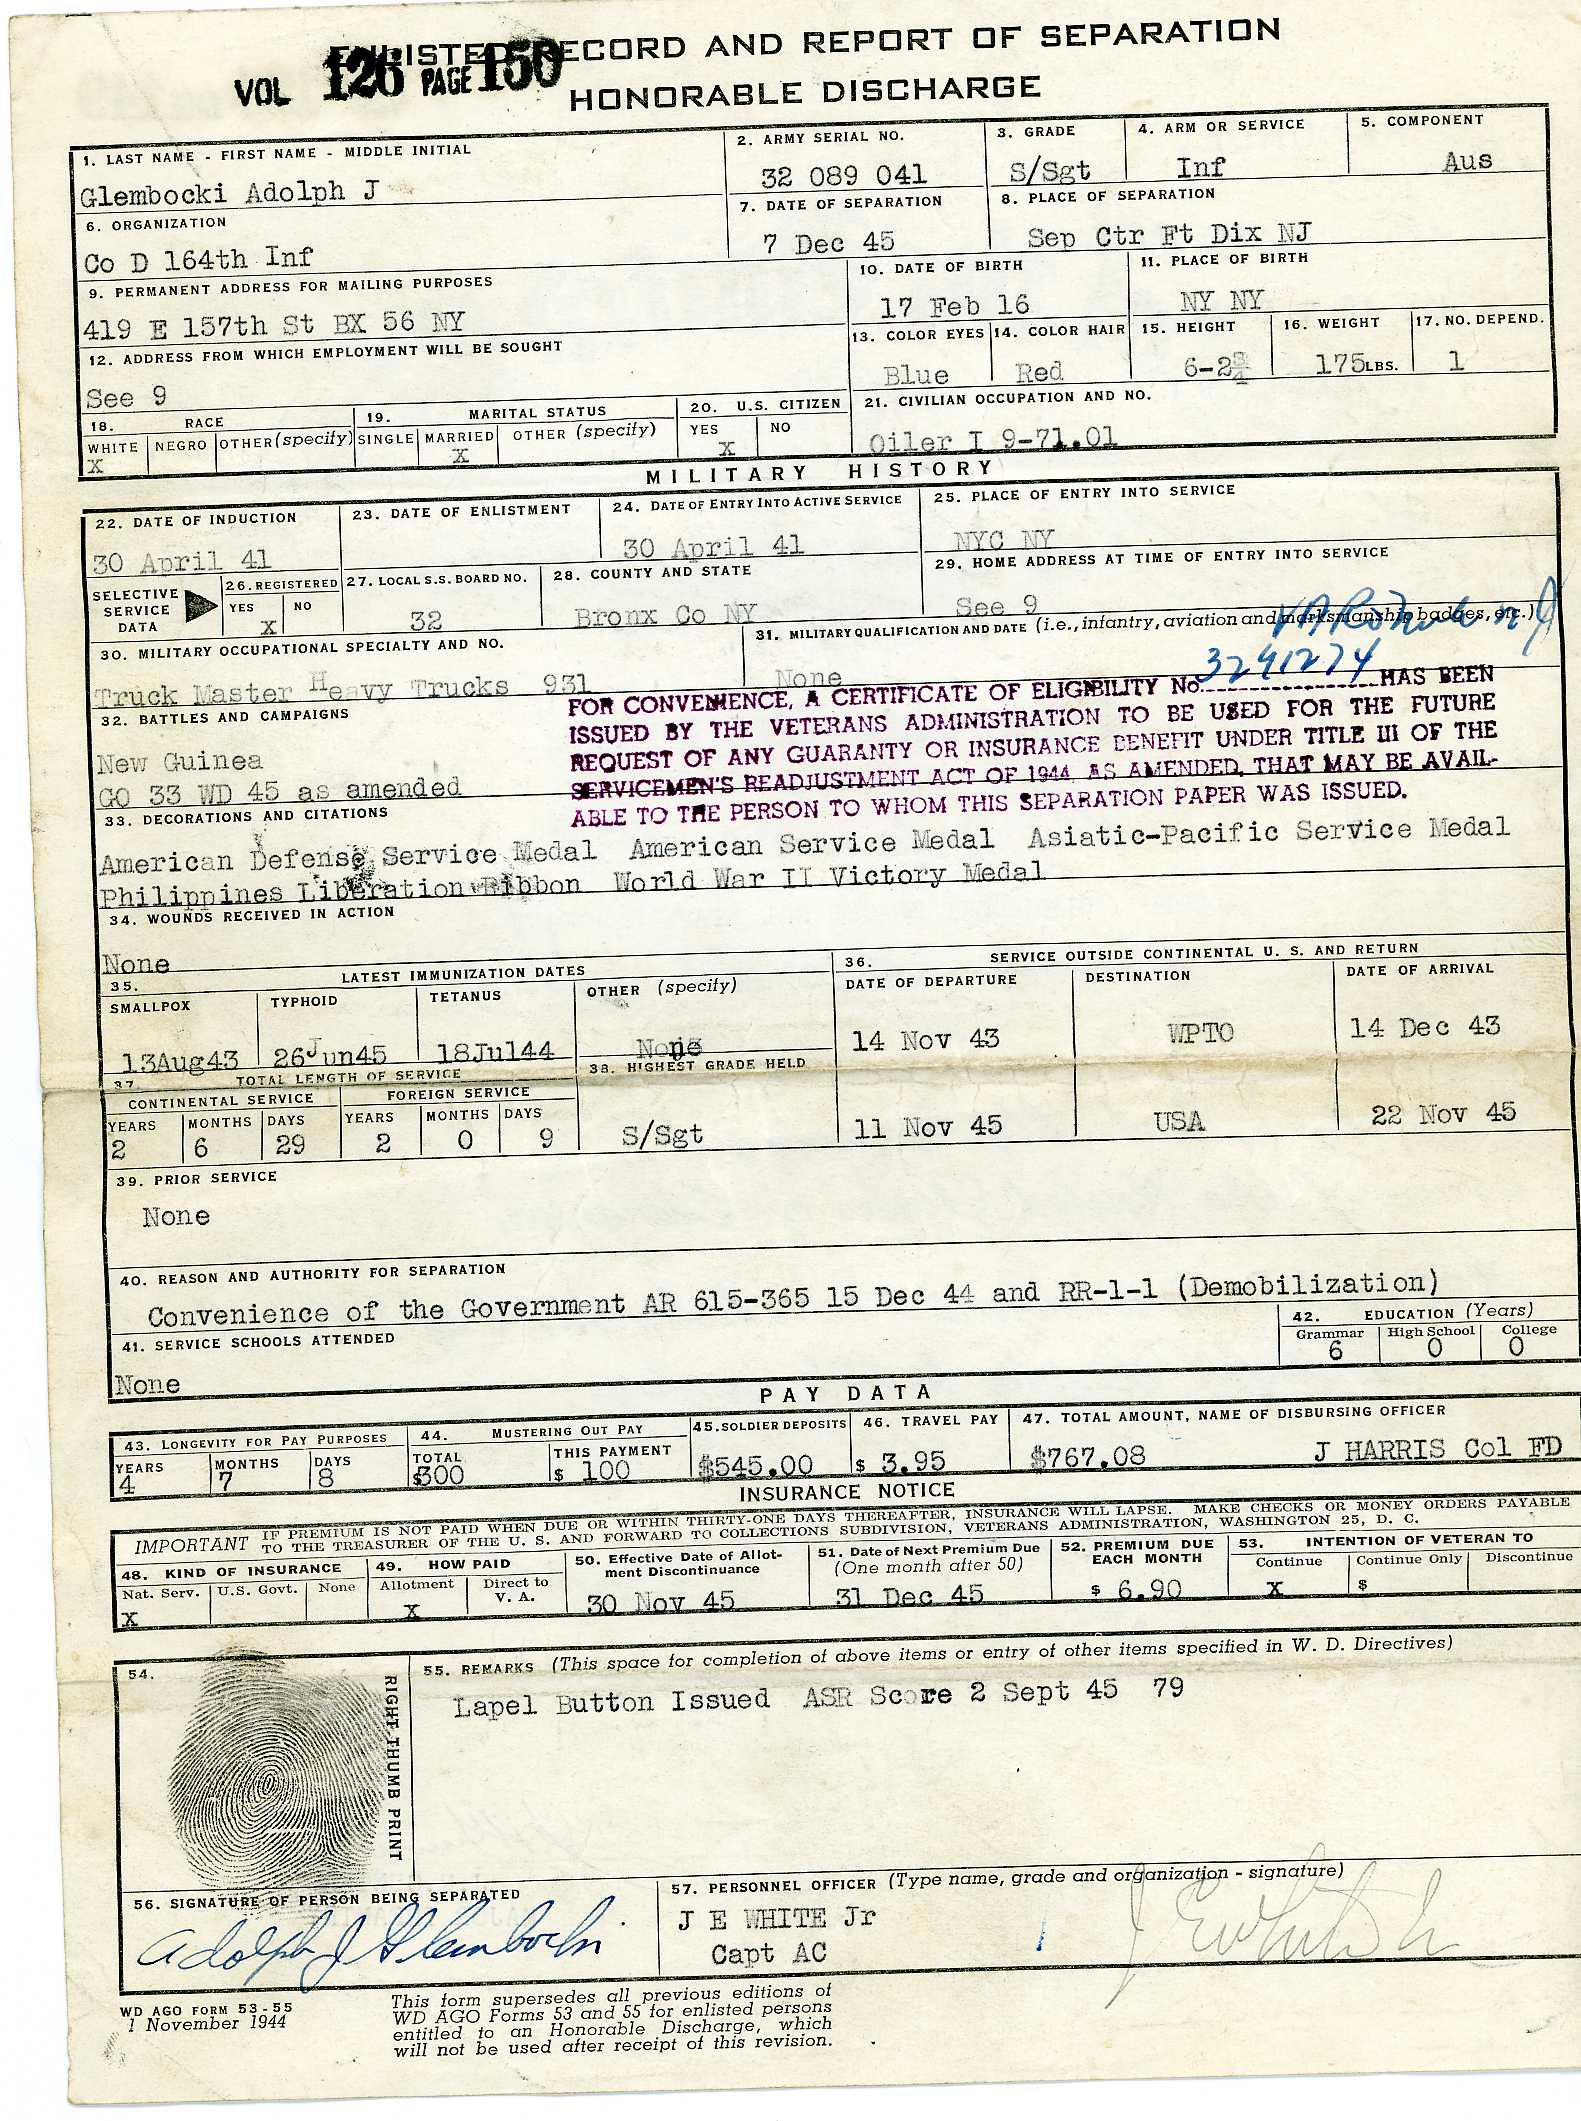 ENLISTED RECORD AND REPORT OF SEPARATION
VOL 126 PAGE 150
HONORABLE DISCHARGE
1. LAST NAME - FIRST NAME - MIDDLE INITIAL
Glembocki Adolph J
2. ARMY SERIAL NO.
32 089 041
3. GRADE
S/Sgt
4. ARM OR SERVICE
Inf
5. COMPONENT
Aus
6. ORGANIZATION
Co D 164th Inf
7. DATE OF SEPARATION
7 Dec 45
8. PLACE OF SEPARATION
Sep Ctr Ft Dix NJ
9. PERMANENT ADDRESS FOR MAILING PURPOSES
419 E 157th St BX 56 NY
10. DATE OF BIRTH
17 Feb 16
11. PLACE OF BIRTH
NY NY
12. ADDRESS FROM WHICH EMPLOYMENT WILL BE SOUGHT
See 9
13. COLOR EYES
Blue
14. COLOR HAIR
Red
15. HEIGHT
6-2 3/4
16. WEIGHT
175 LBS.
17. NO. DEPEND.
1
18. RACE
WHITE NEGRO OTHER (specify)
X
19. MARITAL STATUS
SINGLE MARRIED OTHER (specify)
X
20. U.S. CITIZEN
YES NO
X
21. CIVILIAN OCCUPATION AND NO.
Oiler I 9-71.01
MILITARY HISTORY
22. DATE OF INDUCTION
30 April 41
23. DATE OF ENLISTMENT
24. DATE OF ENTRY INTO ACTIVE SERVICE
30 April 41
25. PLACE OF ENTRY INTO SERVICE
NYC NY
SELECTIVE SERVICE DATA
26. REGISTERED
YES NO
X
27. LOCAL S.S. BOARD NO.
32
28. COUNTY AND STATE
Bronx Co NY
29. HOME ADDRESS AT TIME OF ENTRY INTO SERVICE
See 9
30. MILITARY OCCUPATIONAL SPECIALTY AND NO.
Truck Master Heavy Trucks 931
31. MILITARY QUALIFICATION AND DATE (i.e., infantry, aviation and marksmanship badges, etc.)
None
FOR CONVENIENCE, A CERTIFICATE OF ELIGIBILITY No. 3291274 HAS BEEN
ISSUED BY THE VETERANS ADMINISTRATION TO BE USED FOR THE FUTURE
REQUEST OF ANY GUARANTY OR INSURANCE BENEFIT UNDER TITLE III OF THE
SERVICEMEN'S READJUSTMENT ACT OF 1944, AS AMENDED, THAT MAY BE AVAIL-
ABLE TO THE PERSON TO WHOM THIS SEPARATION PAPER WAS ISSUED.
32. BATTLES AND CAMPAIGNS
New Guinea
GO 33 WD 45 as amended
33. DECORATIONS AND CITATIONS
American Defense Service Medal American Service Medal Asiatic-Pacific Service Medal
Philippines Liberation Ribbon World War II Victory Medal
34. WOUNDS RECEIVED IN ACTION
None
35. LATEST IMMUNIZATION DATES
SMALLPOX TYPHOID TETANUS OTHER (specify)
13Aug43 26Jun45 18Jul44 None
36. SERVICE OUTSIDE CONTINENTAL U. S. AND RETURN
DATE OF DEPARTURE DESTINATION DATE OF ARRIVAL
14 Nov 43 WPTO 14 Dec 43
11 Nov 45 USA 22 Nov 45
37. TOTAL LENGTH OF SERVICE
CONTINENTAL SERVICE FOREIGN SERVICE
YEARS MONTHS DAYS YEARS MONTHS DAYS
2 6 29 2 0 9
38. HIGHEST GRADE HELD
S/Sgt
39. PRIOR SERVICE
None
40. REASON AND AUTHORITY FOR SEPARATION
Convenience of the Government AR 615-365 15 Dec 44 and RR-1-1 (Demobilization)
41. SERVICE SCHOOLS ATTENDED
None
42. EDUCATION (Years)
Grammar High School College
6 0 0
PAY DATA
43. LONGEVITY FOR PAY PURPOSES
YEARS MONTHS DAYS
4 7 8
44. MUSTERING OUT PAY
TOTAL THIS PAYMENT
$300 $ 100
45. SOLDIER DEPOSITS
$545.00
46. TRAVEL PAY
$ 3.95
47. TOTAL AMOUNT, NAME OF DISBURSING OFFICER
$767.08 J HARRIS Col FD
INSURANCE NOTICE
IMPORTANT IF PREMIUM IS NOT PAID WHEN DUE OR WITHIN THIRTY-ONE DAYS THEREAFTER, INSURANCE WILL LAPSE. MAKE CHECKS OR MONEY ORDERS PAYABLE
TO THE TREASURER OF THE U. S. AND FORWARD TO COLLECTIONS SUBDIVISION, VETERANS ADMINISTRATION, WASHINGTON 25, D. C.
48. KIND OF INSURANCE
Nat. Serv. U.S. Govt. None
X
49. HOW PAID
Allotment Direct to V. A.
X
50. Effective Date of Allotment Discontinuance
30 Nov 45
51. Date of Next Premium Due (One month after 50)
31 Dec 45
52. PREMIUM DUE EACH MONTH
$ 6.90
53. INTENTION OF VETERAN TO
Continue Continue Only Discontinue
X $
54.
RIGHT THUMB PRINT
55. REMARKS (This space for completion of above items or entry of other items specified in W. D. Directives)
Lapel Button Issued ASR Score 2 Sept 45 79
56. SIGNATURE OF PERSON BEING SEPARATED
Adolph J Glembocki
57. PERSONNEL OFFICER (Type name, grade and organization - signature)
J E WHITE Jr
Capt AC
J E White Jr
WD AGO FORM 53-55
1 November 1944
This form supersedes all previous editions of
WD AGO Forms 53 and 55 for enlisted persons
entitled to an Honorable Discharge, which
will not be used after receipt of this revision.